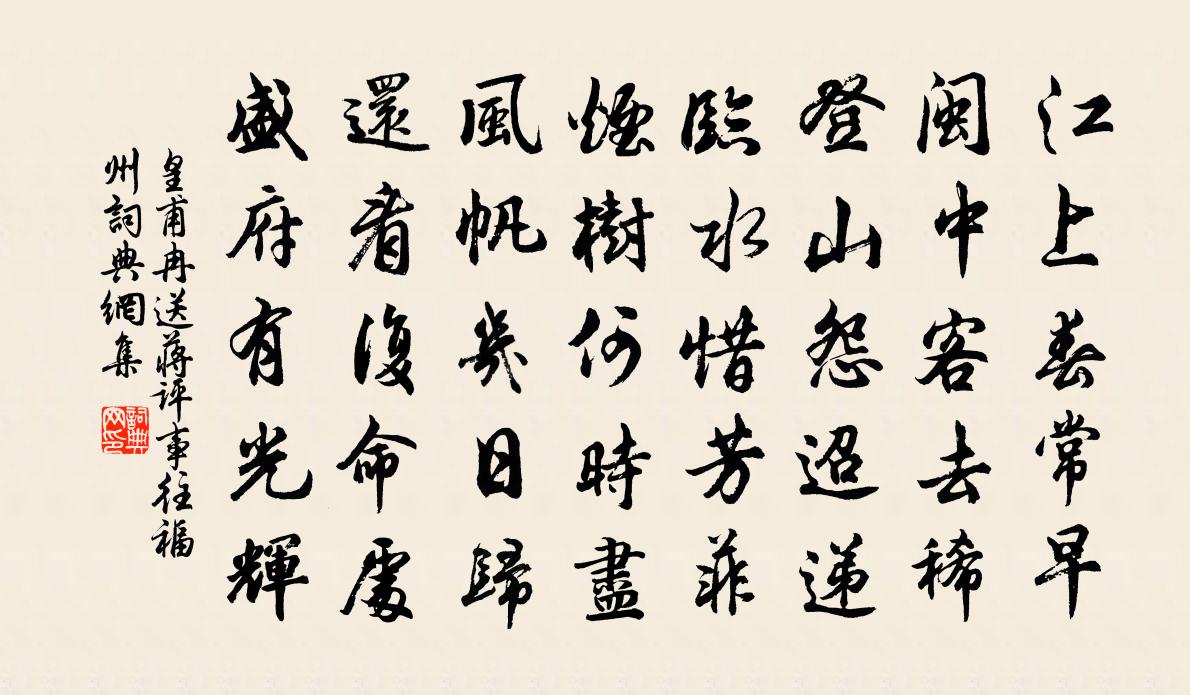 江上春常早
閩中客去稀
登山怨迢递
臨水惜芳菲
煙樹何時盡
風帆幾日歸
還看復命處
盛府有光輝
皇甫冉送蔣評事往福
州詞典網集
詞典
网印